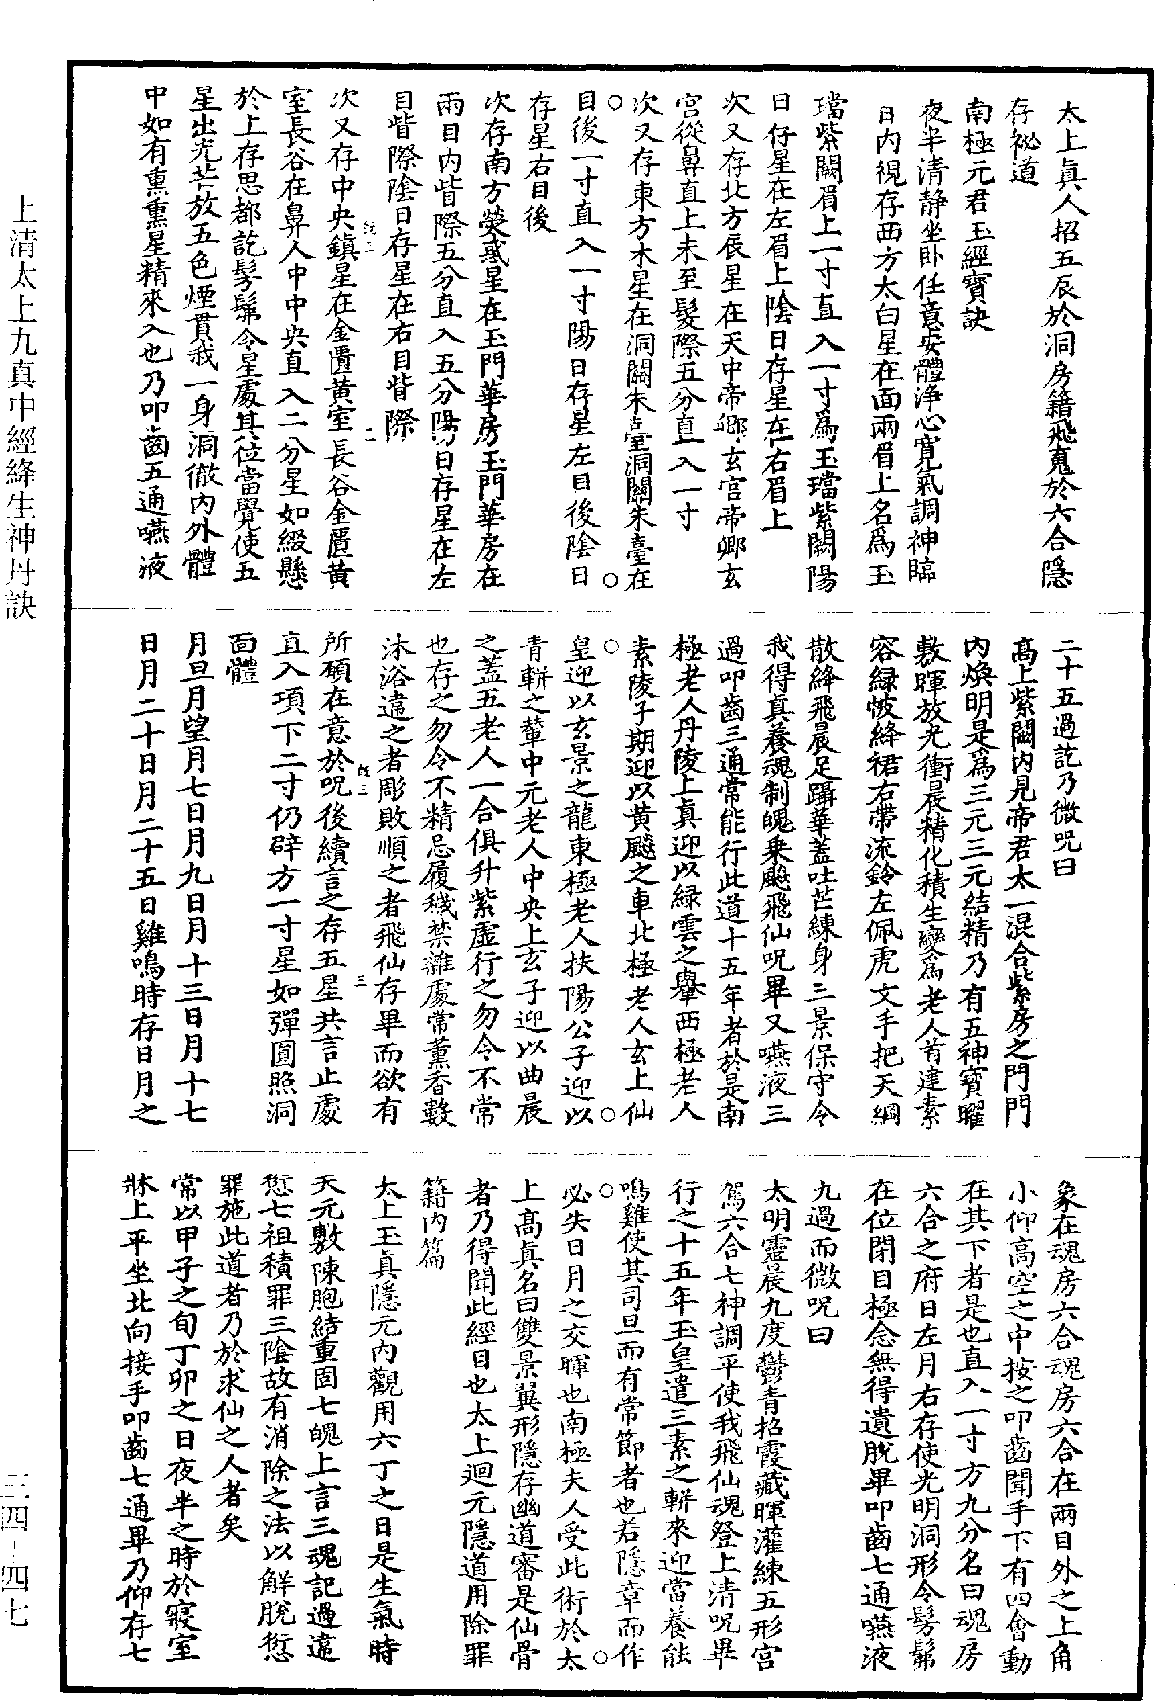 太上眞人招五辰於洞房籍飛䰟於六合隱
存祕道
南極元君玉經寶訣
夜半清静坐卧任意安體淨心寬氣調神臨
目内視存西方太白星在面兩眉上名爲玉
璫紫闕眉上一寸直入一寸爲玉璫紫闕陽
日存星在左眉上陰日存星在右眉上
次又存北方辰星在天中帝鄉玄宫帝鄉玄
宫從鼻直上未至髮際五分直入一寸
次又存東方木星在洞闕朱臺洞闕朱臺在
目後一寸直入一寸陽日存星左目後陰日
存星右目後
次存南方熒惑星在玉門華房玉門華房在
兩目内眥際五分直入五分陽日存星在左
目眥際陰日存星在右目眥際
次又存中央鎮星在金匱黄室長谷金匱黄
室長谷在鼻人中中央直入二分星如綴懸
於上存思都訖髣髴令星處其位當覺使五
星出光芒放五色煙貫我一身洞徹内外體
中如有熏熏星精來入也乃叩齒五通嚥液
二十五過訖乃微呪曰
高上紫闕内見帝君太一混合紫房之門門
内煥明是爲三元三元結精乃有五神寶曜
敷暉放光衝晨精化積生變爲老人首建素
容緑帔絳裙右帶流鈴左佩虎文手把天綱
散絳飛晨足躡華蓋吐芒練身三景保守令
我得真養魂制魄乗飈飛仙呪畢又嚥液三
過叩齒三通常能行此道十五年者於是南
極老人丹陵上真迎以緑雲之轝西極老人
素陵子期迎以黄飈之車北極老人玄上仙
皇迎以玄景之龍東極老人扶陽公子迎以
青軿之輦中元老人中央上玄子迎以曲晨
之蓋五老人一合俱升紫虚行之勿令不常
也存之勿令不精忌履穢禁雜處常薰香數
沐浴違之者彫敗順之者飛仙存畢而欲有
所願在意於呪後續言之存五星共言止處
直入項下二寸仍辟方一寸星如彈圓照洞
面體
月旦月望月七日月九日月十三日月十七
日月二十日月二十五日雞鳴時存日月之
象在魂房六合魂房六合在兩目外之上角
小仰高空之中按之叩齒聞手下有四會動
在其下者是也直入一寸方九分名曰魂房
六合之府日左月右存使光明洞形令髣髴
在位閉目極念無得遺脱畢叩齒七通嚥液
九過而微呪曰
太明靈晨九度鬱青招霞藏暉灌練五形宫
駕六合七神調平使我飛仙魂登上清呪畢
行之十五年玉皇遣三素之軿來迎當養能
鳴雞使其司旦而有常節者也若隱章而作
必失日月之交暉也南極夫人受此術於太
上高眞名曰雙景翼形隱存幽道審是仙骨
者乃得聞此經目也太上迴元隱道用除罪
籍内篇
太上玉真隱元内觀用六丁之日是生氣時
天元敷陳胞結重固七魄上言三魂記過違
愆七祖積罪三陰故有消除之法以解脱愆
罪施此道者乃於求仙之人者矣
常以甲子之旬丁卯之日夜半之時於寢室
牀上平坐北向接手叩齒七通畢乃仰存七
上清太上九真中經絳生神丹訣
三四-四七